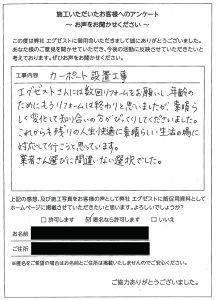 施工いただいたお客様へのアンケート
～ お声をお聞かせください ～
この度は弊社 エグゼストに御用命いただきまして誠にありがとうございました。
あなた様のご意見をお聞かせいただき、今後の活動に反映させていただきたいと
考えております。ぜひお声をお聞かせください。
工事内容 カーポート設置工事
エグゼストさんには数回リフォームをお願いし、年齢の
ためにもうリフォームは終わりと思いましたが、素晴ら
しく変化して知り合いの方がびっくりしてくださいました。
これからも残りの人生快適に素晴らしい生活の場に
対応して行こうと思っています。
業者さん選びに間違いない選択でした。
上記の感想、及び施工写真をお客様の声として弊社 エグゼストに販促用資料として
ホームページに掲載させていただきたいと思います。よろしいでしょうか?
□ 許可します ☑ 匿名なら許可します □ いいえ
お名前
ご住所
※匿名をご希望の場合はお名前とご住所は掲載いたしませんのでご安心ください。
ご協力ありがとうございました。